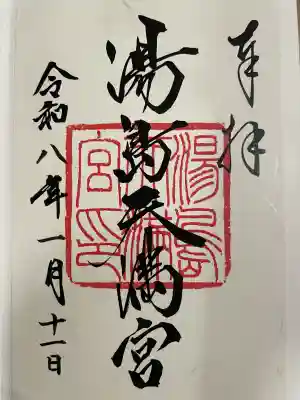 奉拝
湯島天満宮
令和八年一月十一日
湯島天満宮印